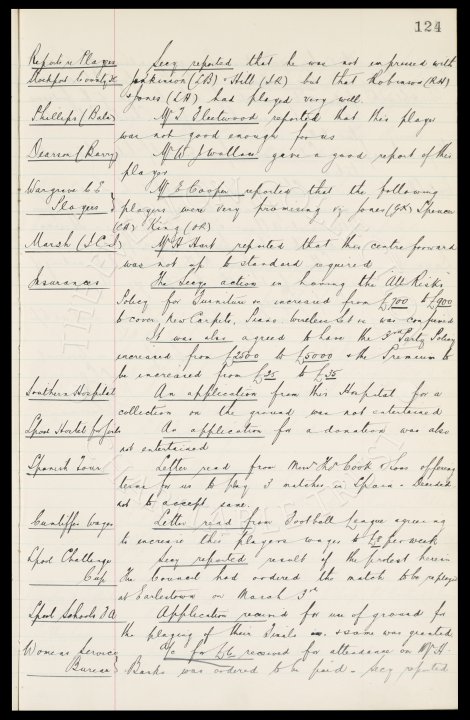 124
Report re Players Secy reported that he was not impressed with
Stockport County Parkinson (LB) & Hill (IR) but that Robinson (RH)
& Jones (LH) had played very well.
Phillips (Bala) Mr T. Fleetwood reported that this player
was not good enough for us
Dearson (Barry) Mr W. J. Wallace gave a good report of this
player
Wargrave C E Mr E Cooper reported that the following
Players players were very promising viz Jones (GK) Spencer
King (OR)
Marsh (S.C.S) Mr H Hart reported that this centre forward
was not up to standard required
Insurances The Secys action in having the All Risks
Policy for Furniture &c increased from £700 to £900
to cover New Carpets, Piano, Wireless Set &c was confirmed
It was also agreed to have the 3rd Party Policy
increased from £2500 to £5000 & the Premium to
be increased from £25 to £35
Southern Hospital An application from this Hospital for a
collection on the ground was not entertained
Lpool Hostel for Girls An application for a donation was also
not entertained
Spanish Tour Letter read from Messrs Thos Cook & Sons offering
terms for us to play 3 matches in Spain - Decided
not to accept same.
Cunliffes Wages Letter read from Football League agreeing
to increase this players wages to £8 per week
Lpool Challenge Secy reported result of the protest herein
Cup The Council had ordered the match to be replayed
at Earlestown on March 3rd
Lpool Schools F A Application received for use of ground for
the playing of their Finals & same was granted
Womens Service A/c for received for attendance on Mr H.
Bureau Banks was ordered to be paid - Secy reported